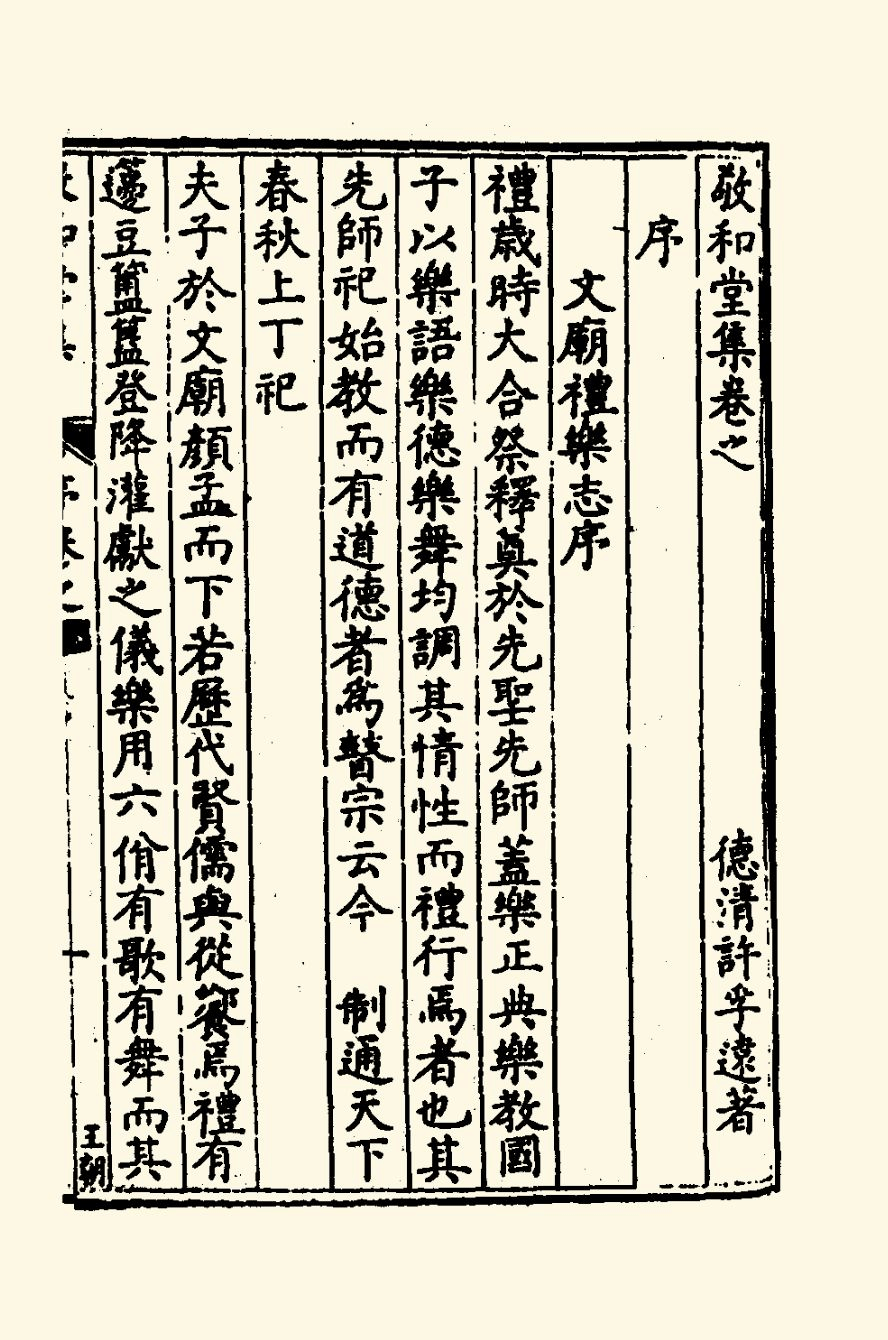 敬和堂集卷之　　　　　德清許孚遠著
序
文廟禮樂志序
禮歲時大合祭釋奠於先聖先師蓋樂正典樂教國
子以樂語樂德樂舞均調其情性而禮行焉者也其
先師祀始教而有道德者爲瞽宗云今　制通天下
春秋上丁祀
夫子於文廟顏孟而下若歷代賢儒與從饗焉禮有
籩豆簠簋登降灌獻之儀樂用六佾有歌有舞而其
王朝